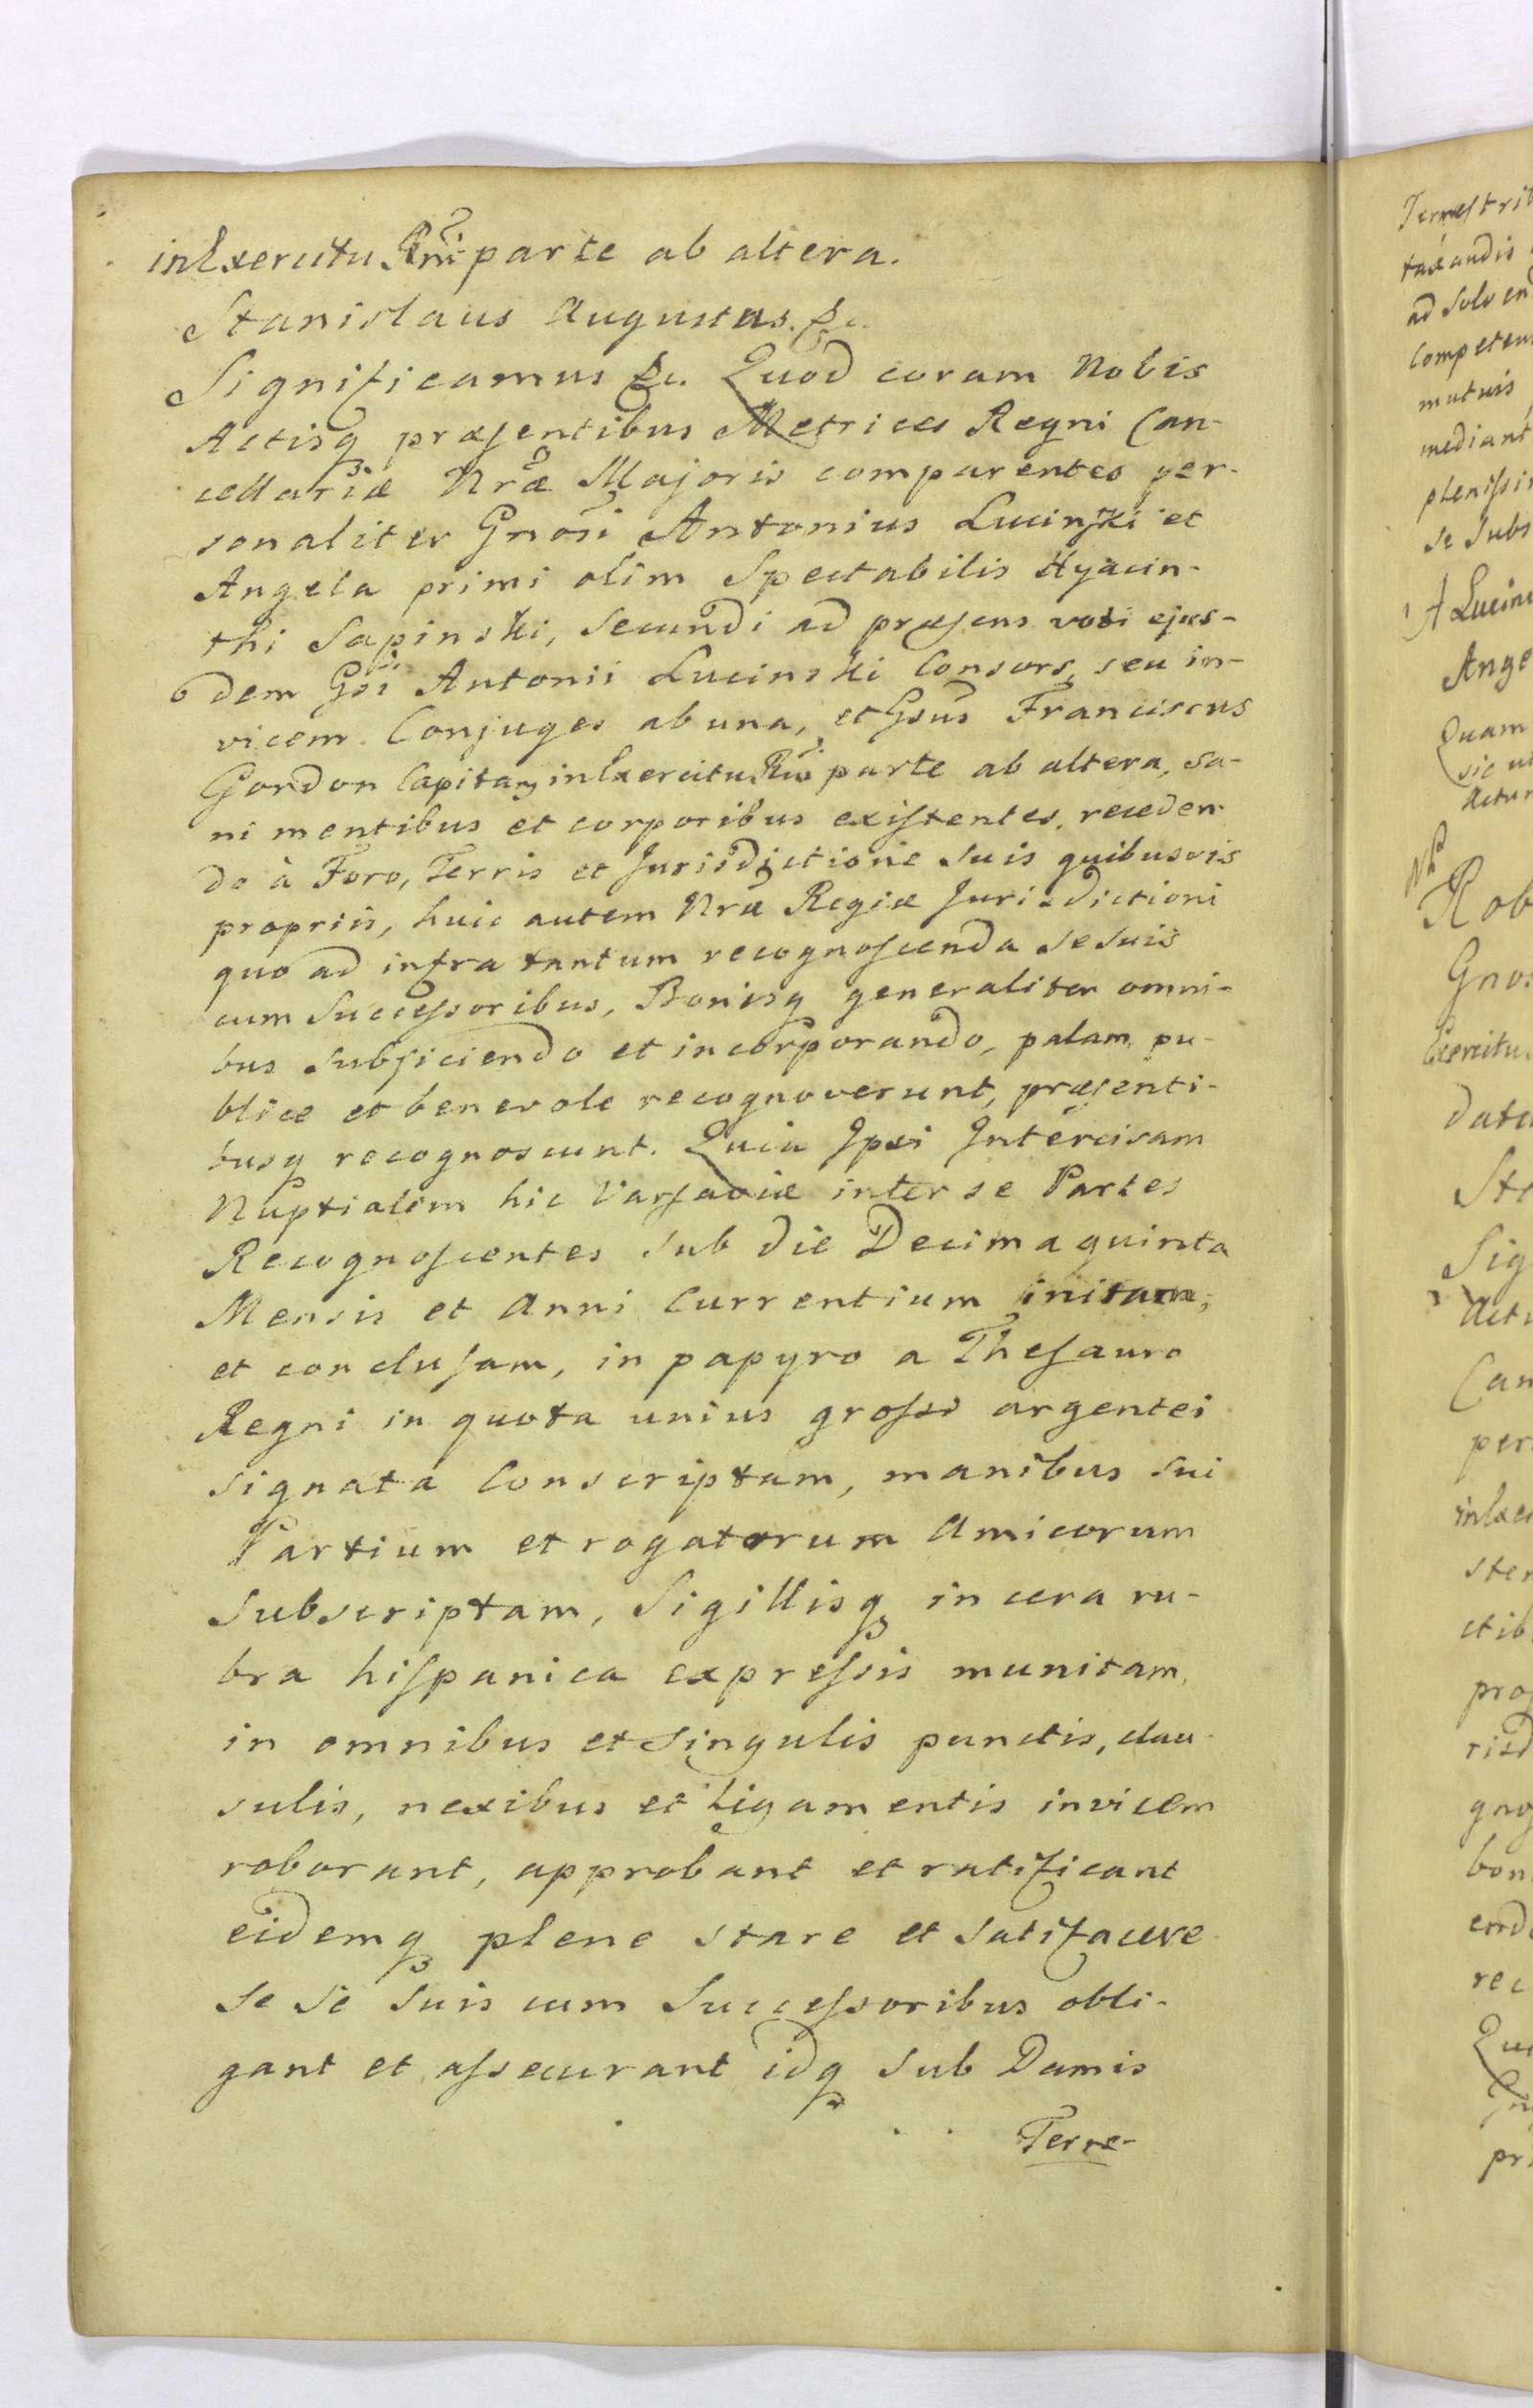 in Exercitu Rni parte ab altera.
Stanislaus Augustus. &c.
Significamus &c. Quod coram Nobis
Actisq præsentibus Metrices Regni Can-
cellariæ Nræ Majoris comparentes per-
sonaliter Gnosi Antonius Lucinski et
Angela primi olim Spectabilis Hyacin-
thi Sapinski, secundi ad præsens voti ejus-
dem Gsi Antonii Lucinski Consors, seu in-
vicem Conjuges ab una, et Gsus Franciscus
Gordon Capitan in Exercitu Rni parte ab altera, sa-
ni mentibus et corporibus existentes, receden-
do à Foro, Terris et Jurisdictione suis quibusvis
propriis, huic autem Nræ Regiæ Jurisdictioni
quo ad infra tantum recognoscenda se suis
cum Successoribus, Bonisq generaliter omni-
bus subjiciendo et incorporando, palam pu-
blice et benevole recognoverunt, præsenti-
busq recognoscunt. Quia Ipsi Intercisam
Nuptialem hic Varsaviæ inter se Partes
Recognoscentes sub die Decima quinta
Mensis et Anni Currentium initam,
et conclusam, in papyro a Thesauro
Regni in quota unius grossi argentei
signata Conscriptam, manibus sui
Partium et rogatorum Amicorum
Subscriptam, Sigillisq in cera ru-
bra hispanica expressis munitam,
in omnibus et singulis punctis, clau-
sulis, nexibus et ligamentis invicem
roborant, approbant et ratificant
eidemq plene stare et satisfacere
se se suis cum Successoribus obli-
gant et assecurant idq sub Damis
Terre-
Terrestri
taxandis
ad solven
Competen
mutuis
mediant
plenissi
se subs
A Lucin
Ange
Quam
sic
Actu
Rob
Gno
Exercitu
Datu
Sta
Sig
Act
Can
per
in Exe
ctib
pro
risd
gno
bon
end
rec
Qui